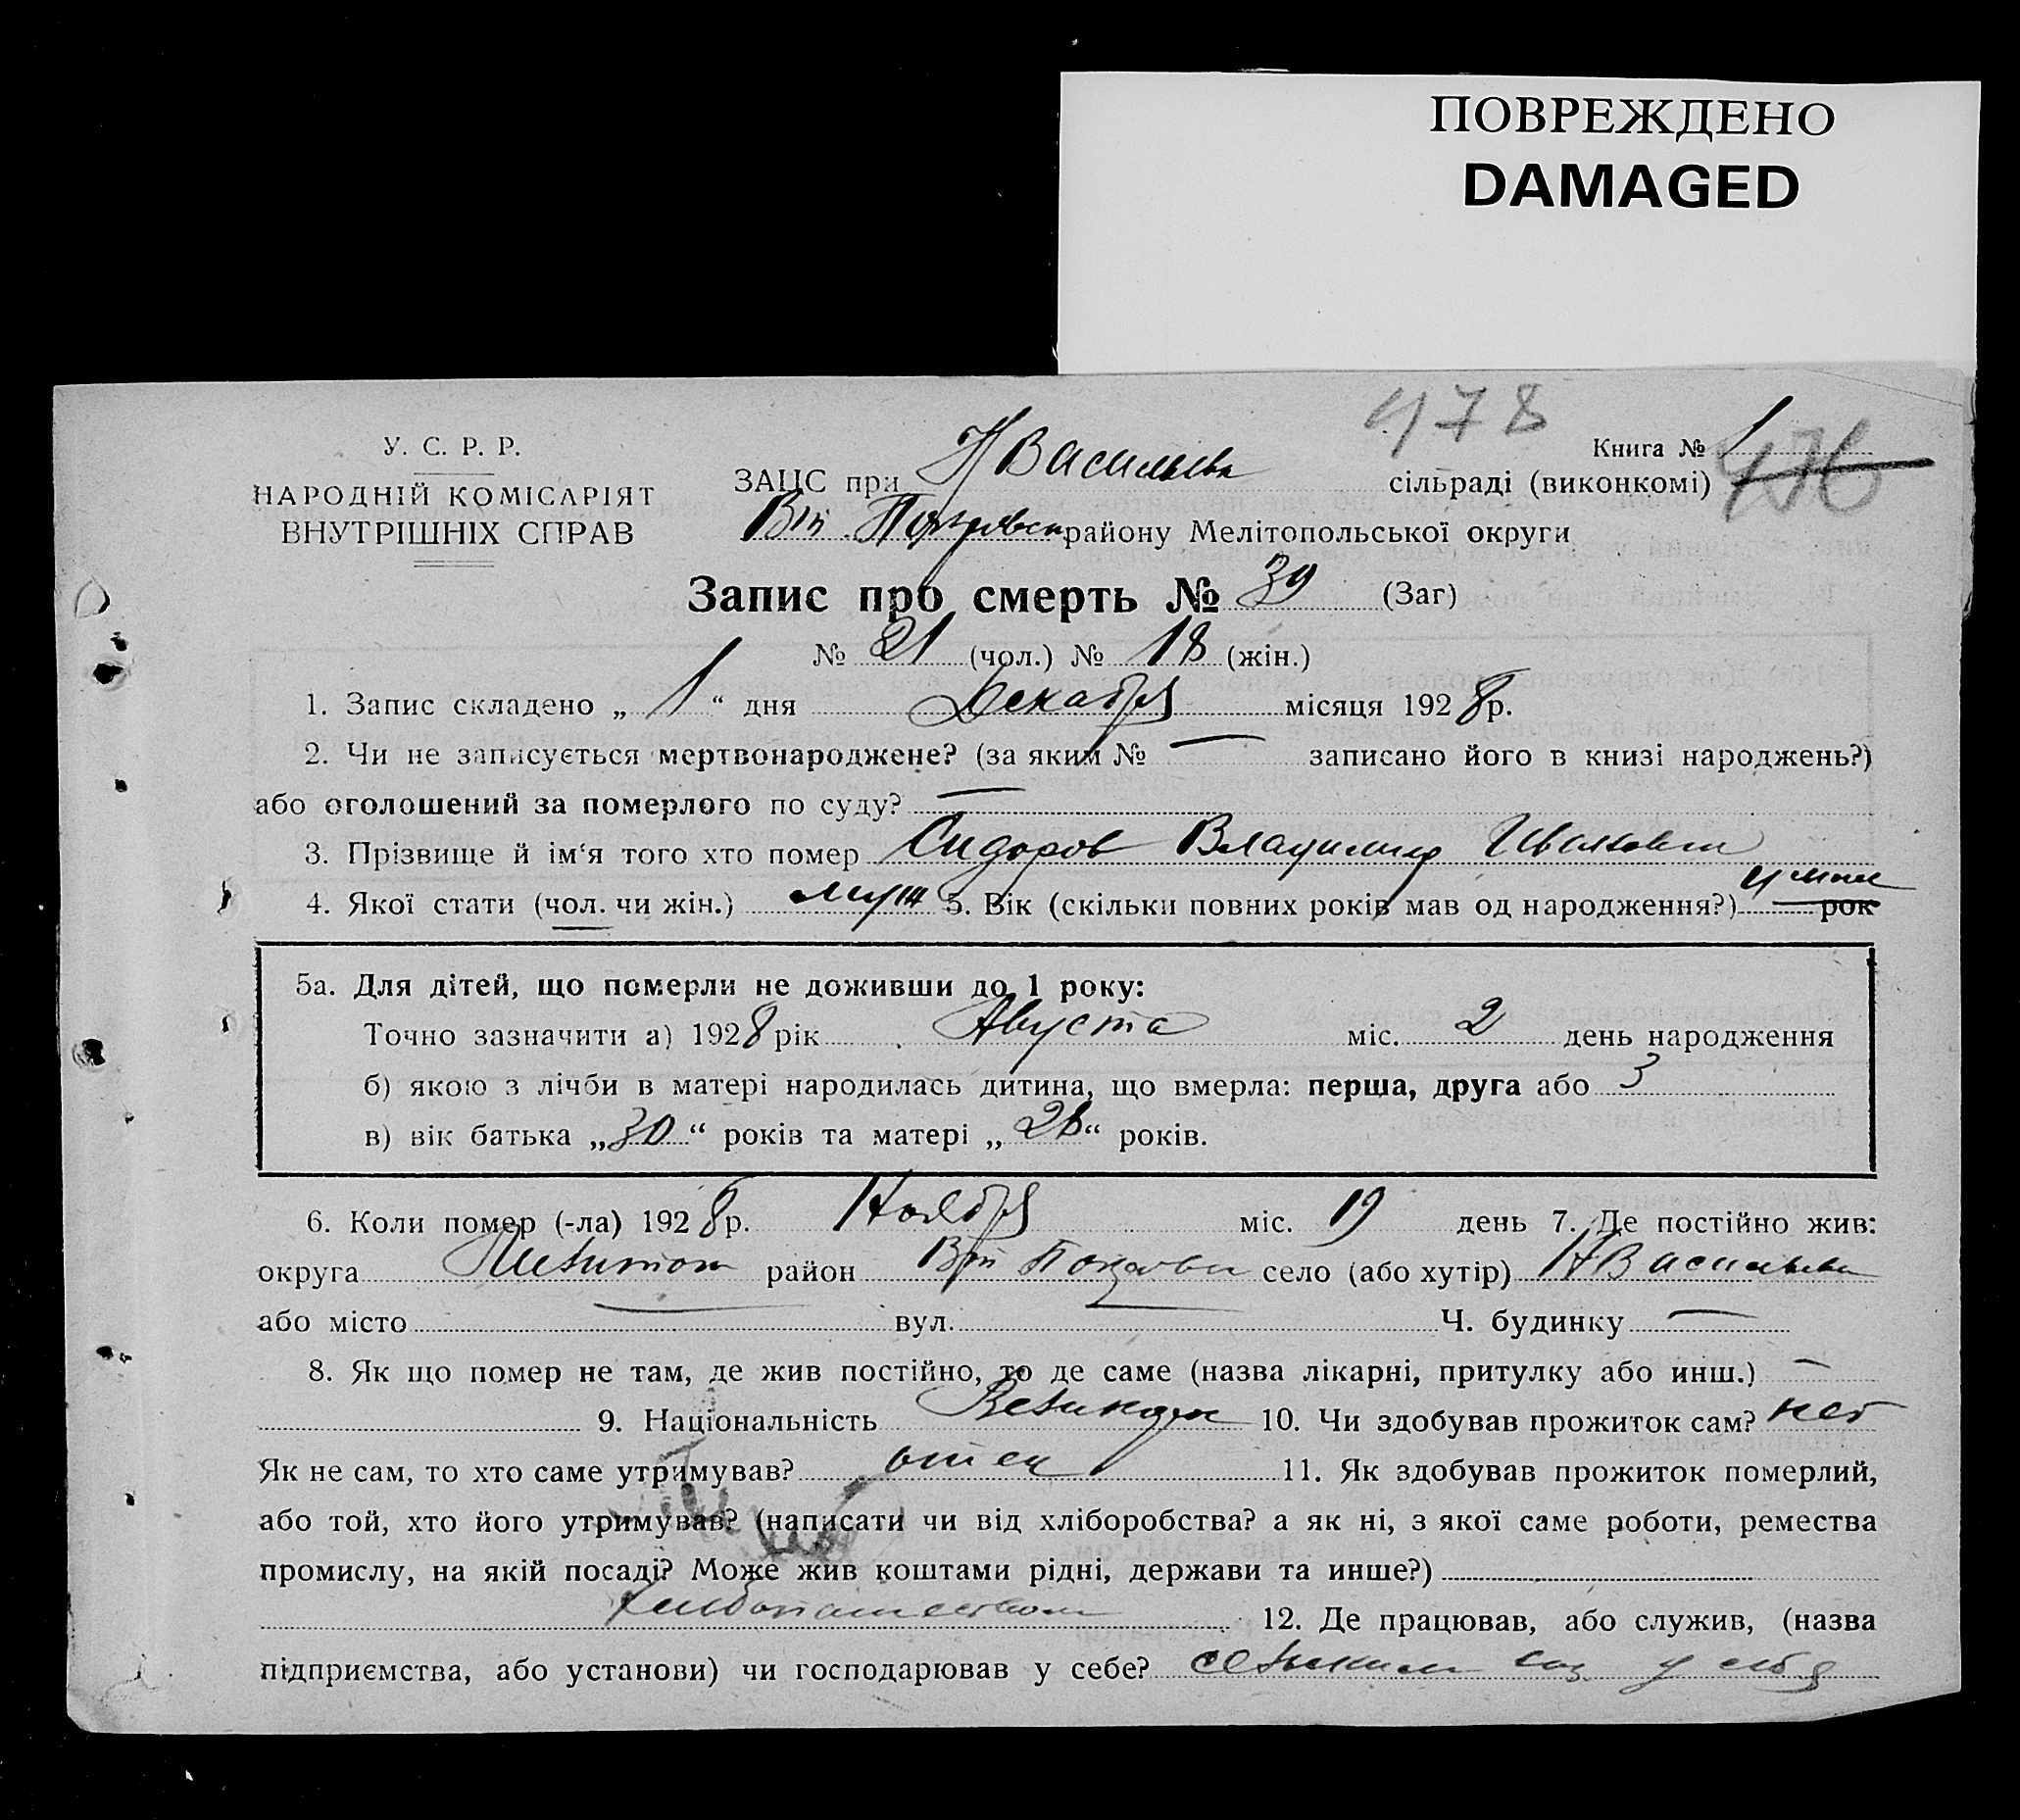 ПОВРЕЖДЕНО
DAMAGED
478
У. С. Р. Р.
НАРОДНІЙ КОМІСАРІЯТ
ВНУТРІШНІХ СПРАВ
Книга № 1
ЗАЦС при Н Васильевк сільраді (виконкомі) 476
району Мелітопольської округи
Запис про смерть № 39 (Заг)
№ 21 (чол.) № 18 (жін.)
1. Запис складено „ 1 “ дня Декабря місяця 1928 р.
2. Чи не записується мертвонароджене? (за яким № — записано його в книзі народжень?)
або оголошений за померлого по суду? —
3. Прізвище й ім‘я того хто помер Сидоров Владимир Иванович
4. Якої стати (чол. чи жін.) муж 5. Вік (скільки повних років мав од народження?) 4 мес рок
5а. Для дітей, що померли не доживши до 1 року:
Точно зазначити а) 1928 рік Августа міс. 2 день народження
б) якою з лічби в матері народилась дитина, що вмерла: перша, друга або 3
в) вік батька „30“ років та матері „28“ років.
6. Коли помер (-ла) 1928 р. Ноября міс. 19 день 7. Де постійно жив:
округа Мелитоп район село (або хутір) Н Васильевк
або місто — вул. — Ч. будинку —
8. Як що помер не там, де жив постійно, то де саме (назва лікарні, притулку або инш.) —
9. Національність 10. Чи здобував прожиток сам? нет
Як не сам, то хто саме утримував? отец 11. Як здобував прожиток померлий,
або той, хто його утримував? (написати чи від хліборобства? а як ні, з якої саме роботи, ремества
промислу, на якій посаді? Може жив коштами рідні, держави та инше?)
хлебопашеством 12. Де працював, або служив, (назва
підприємства, або установи) чи господарював у себе? сельским хоз у себя